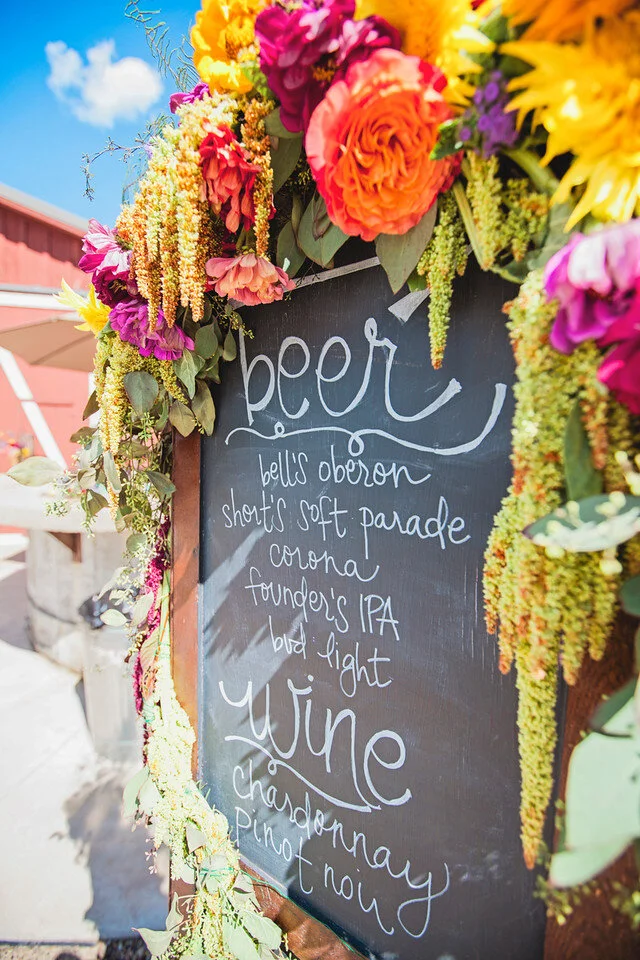 beer
bell's oberon
short's soft parade
corona
founder's IPA
bud light
wine
chardonnay
pinot noir